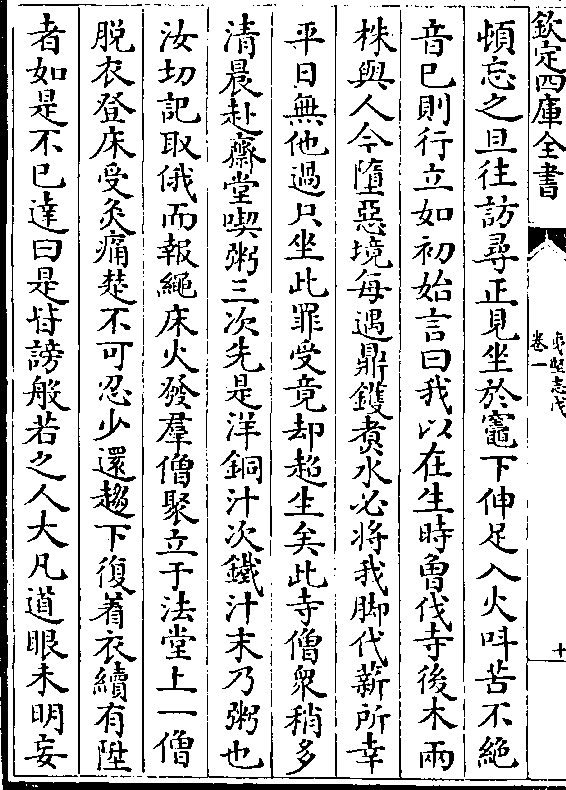 欽定四庫全書
夷堅志戊
卷一
十
頓忘之旦往訪尋正見坐於竈下伸足入火呌苦不絶
音已則行立如初始言曰我以在生時曾伐寺後木兩
株與人今墮惡境每遇鼎鑊煑水必將我脚代薪所幸
平日無他過只坐此罪受竟却超生矣此寺僧衆稍多
清晨赴齋堂喫粥三次先是洋銅汁次鐵汁末乃粥也
汝切記取俄而報繩床火發羣僧聚立于法堂上一僧
脱衣登床受灸痛楚不可忍少還趨下復着衣續有陞
者如是不已達曰是皆謗般若之人大凡道眼未明妄